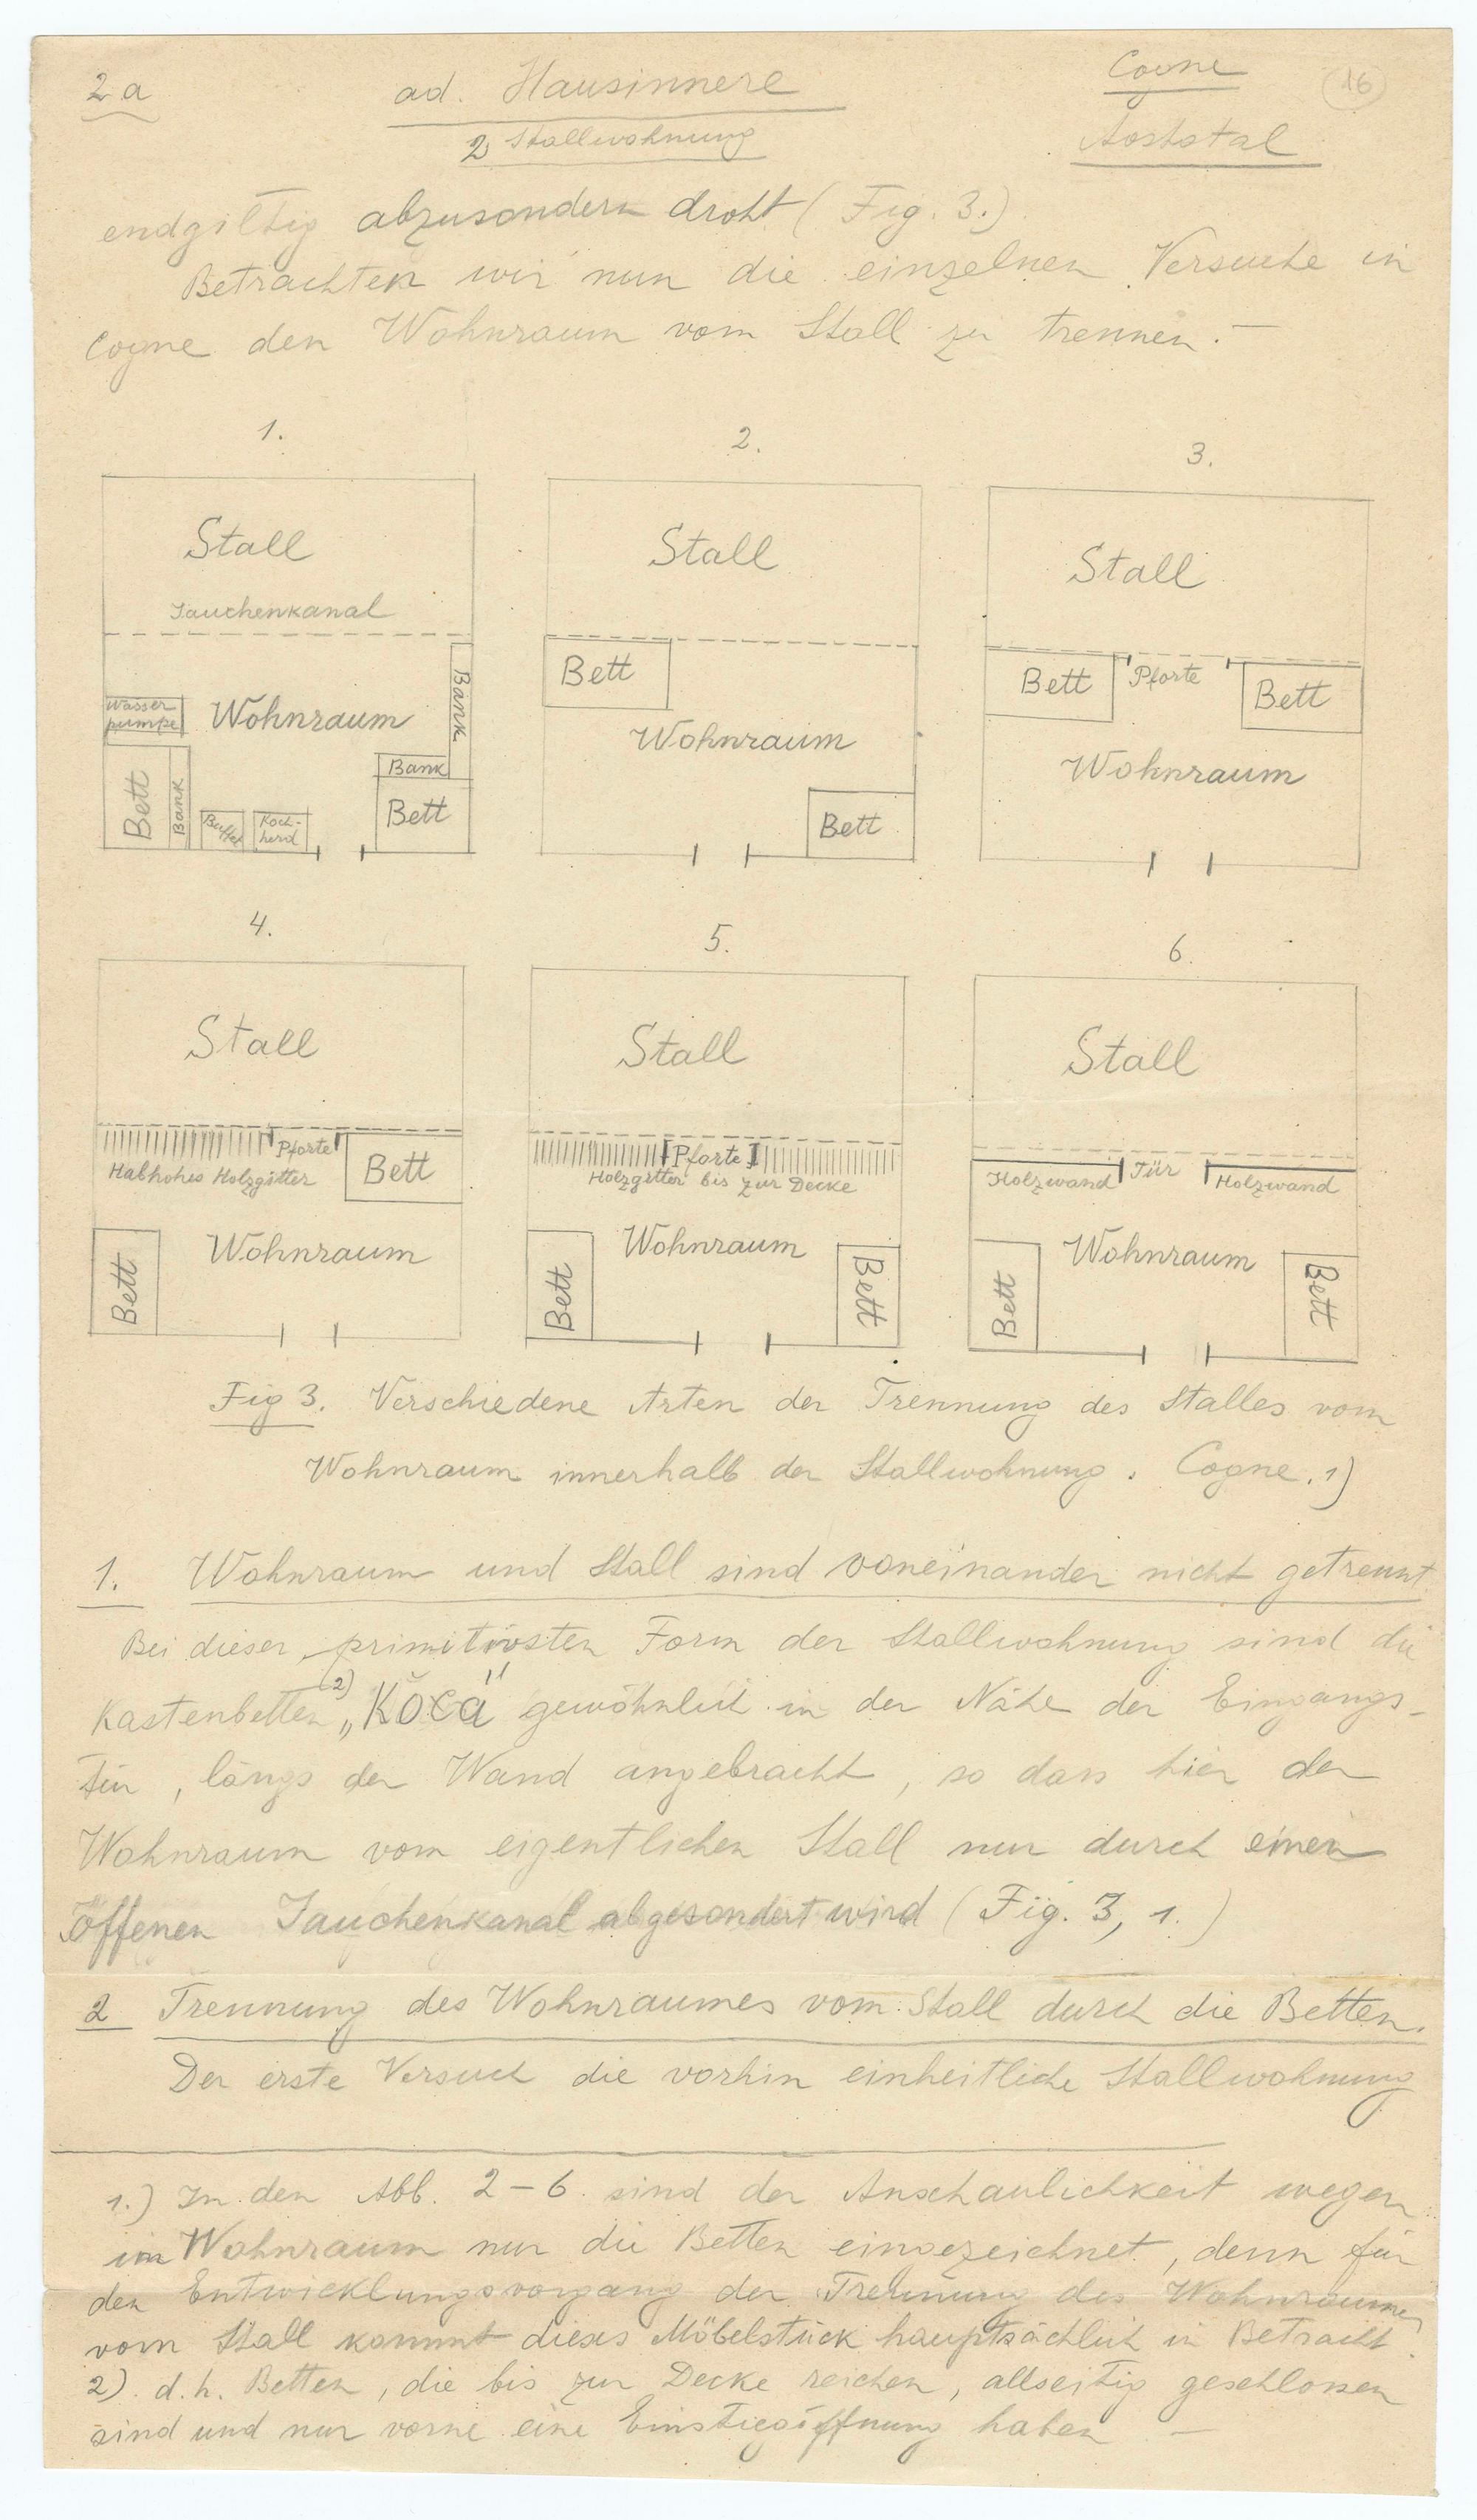 2a
ad. Hausinnere
Cogne
16
2 Stallwohnung
Aostatal
endgiltig abzusondern droht (Fig. 3.)
Betrachten wir nun die einzelnen Versuche in
Cogne den Wohnraum vom Stall zu trennen. —
1.
2.
3.
Stall
Jauchenkanal
Wasser
pumpe
Wohnraum
Bank
Bank
Bett
Bank
Buffet
Koch-
herd
Bett
Stall
Bett
Wohnraum
Bett
Stall
Bett
Pforte
Bett
Wohnraum
4.
5.
6.
Stall
Pforte
Halbhohes Holzgitter
Bett
Wohnraum
Bett
Stall
Pforte
Holzgitter bis zur Decke
Wohnraum
Bett
Bett
Stall
Holzwand
Tür
Holzwand
Wohnraum
Bett
Bett
Fig 3. Verschiedene Arten der Trennung des Stalles vom
Wohnraum innerhalb der Stallwohnung. Cogne. 1)
1. Wohnraum und Stall sind voneinander nicht getrennt.
Bei dieser primitivsten Form der Stallwohnung sind die
Kastenbetten 2) gewöhnlich in der Nähe der Eingangs-
tür, längs der Wand angebracht, so dass hier der
Wohnraum vom eigentlichen Stall nur durch einen
offenen Jauchenkanal abgesondert wird (Fig. 3, 1.)
2 Trennung des Wohnraumes vom Stall durch die Betten.
Der erste Versuch die vorhin einheitliche Stallwohnung
1.) In den Abb. 2 – 6. sind der Anschaulichkeit wegen
im Wohnraum nur die Betten eingezeichnet, denn für
den Entwicklungsvorgang der Trennung des Wohnraumes
vom Stall kommt dieses Möbelstück hauptsächlich in Betracht.
2). d. h. Betten, die bis zur Decke reichen, allseitig geschlossen
sind und nur vorne eine Einstiegöffnung haben —